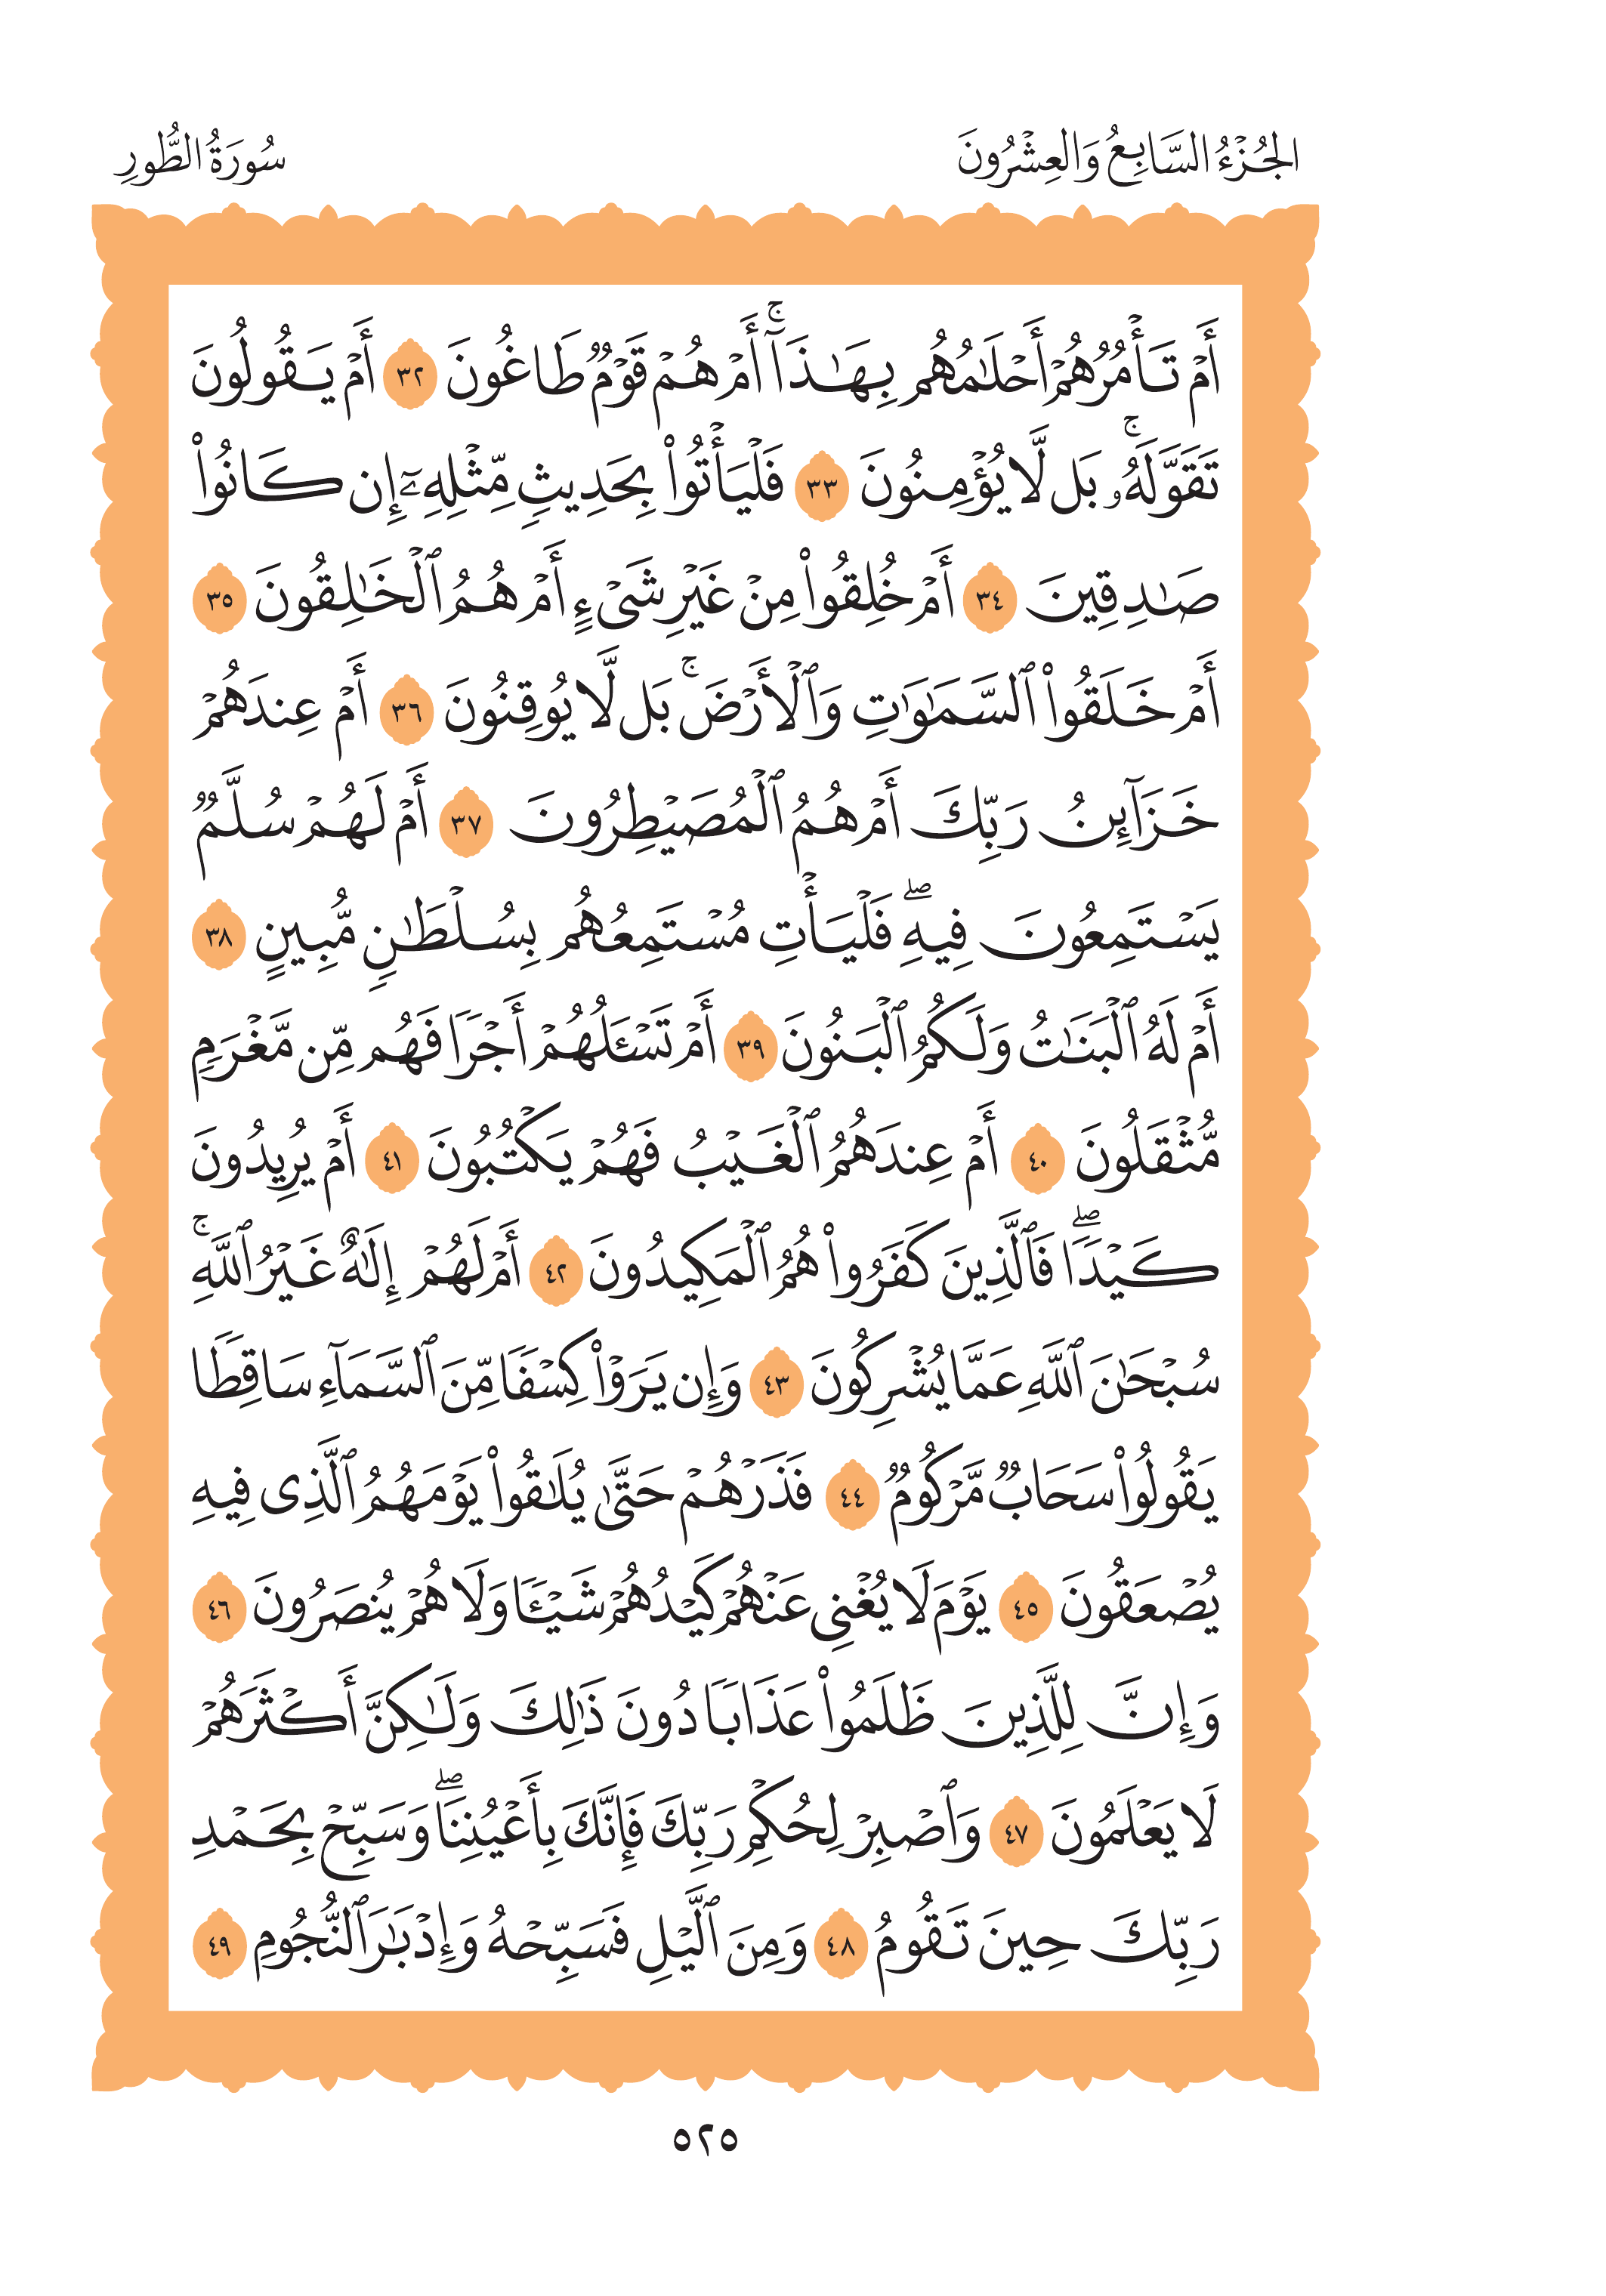 الجُزْءُ السَّابِعُ وَالعِشْرُونَ
سُورَةُ الطُّورِ
أَمۡ تَأۡمُرُهُمۡ أَحۡلَٰمُهُم بِهَٰذَآۚ أَمۡ هُمۡ قَوۡمٞ طَاغُونَ ٣٢ أَمۡ يَقُولُونَ
تَقَوَّلَهُۥۚ بَل لَّا يُؤۡمِنُونَ ٣٣ فَلۡيَأۡتُواْ بِحَدِيثٖ مِّثۡلِهِۦٓ إِن كَانُواْ
صَٰدِقِينَ ٣٤ أَمۡ خُلِقُواْ مِنۡ غَيۡرِ شَيۡءٍ أَمۡ هُمُ ٱلۡخَٰلِقُونَ ٣٥
أَمۡ خَلَقُواْ ٱلسَّمَٰوَٰتِ وَٱلۡأَرۡضَۚ بَل لَّا يُوقِنُونَ ٣٦ أَمۡ عِندَهُمۡ
خَزَآئِنُ رَبِّكَ أَمۡ هُمُ ٱلۡمُصَيۡطِرُونَ ٣٧ أَمۡ لَهُمۡ سُلَّمٞ
يَسۡتَمِعُونَ فِيهِۖ فَلۡيَأۡتِ مُسۡتَمِعُهُم بِسُلۡطَٰنٖ مُّبِينٍ ٣٨
أَمۡ لَهُ ٱلۡبَنَٰتُ وَلَكُمُ ٱلۡبَنُونَ ٣٩ أَمۡ تَسۡـَٔلُهُمۡ أَجۡرٗا فَهُم مِّن مَّغۡرَمٖ
مُّثۡقَلُونَ ٤٠ أَمۡ عِندَهُمُ ٱلۡغَيۡبُ فَهُمۡ يَكۡتُبُونَ ٤١ أَمۡ يُرِيدُونَ
كَيۡدٗاۖ فَٱلَّذِينَ كَفَرُواْ هُمُ ٱلۡمَكِيدُونَ ٤٢ أَمۡ لَهُمۡ إِلَٰهٌ غَيۡرُ ٱللَّهِۚ
سُبۡحَٰنَ ٱللَّهِ عَمَّا يُشۡرِكُونَ ٤٣ وَإِن يَرَوۡاْ كِسۡفٗا مِّنَ ٱلسَّمَآءِ سَاقِطٗا
يَقُولُواْ سَحَابٞ مَّرۡكُومٞ ٤٤ فَذَرۡهُمۡ حَتَّىٰ يُلَٰقُواْ يَوۡمَهُمُ ٱلَّذِي فِيهِ
يُصۡعَقُونَ ٤٥ يَوۡمَ لَا يُغۡنِي عَنۡهُمۡ كَيۡدُهُمۡ شَيۡـٔٗا وَلَا هُمۡ يُنصَرُونَ ٤٦
وَإِنَّ لِلَّذِينَ ظَلَمُواْ عَذَابٗا دُونَ ذَٰلِكَ وَلَٰكِنَّ أَكۡثَرَهُمۡ
لَا يَعۡلَمُونَ ٤٧ وَٱصۡبِرۡ لِحُكۡمِ رَبِّكَ فَإِنَّكَ بِأَعۡيُنِنَاۖ وَسَبِّحۡ بِحَمۡدِ
رَبِّكَ حِينَ تَقُومُ ٤٨ وَمِنَ ٱلَّيۡلِ فَسَبِّحۡهُ وَإِدۡبَٰرَ ٱلنُّجُومِ ٤٩
٥٢٥